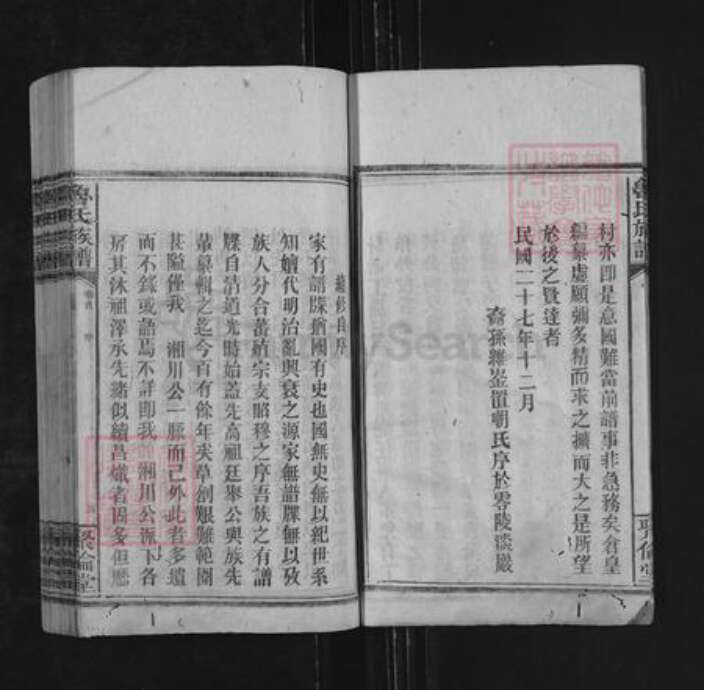 魯氏族譜
村亦即是意國難當前譜事非急務矣倉皇
編纂虛願彌多精而求之擴而大之是所望
於後之賢達者
民國二十七年十二月
裔孫 嶽氏序於零陵淡巖
聚倫堂
續修自序
家有譜牒猶國有史也國無史無以紀世系
知嬗代明治亂興衰之源家無譜牒無以攷
族人分合蕃殖宗支昭穆之序吾族之有譜
牒自清道光時始蓋先高祖廷聚公與族先
輩纂輯之迄今百有餘年矣草創艱難範圍
甚隘僅我 湘川公一脈而已外此者多遺
而不錄或語焉不詳即我 湘川公派下各
房其沐祖澤承先緒似續昌熾者固多但歷
魯氏族譜
卷首 序
聚倫堂